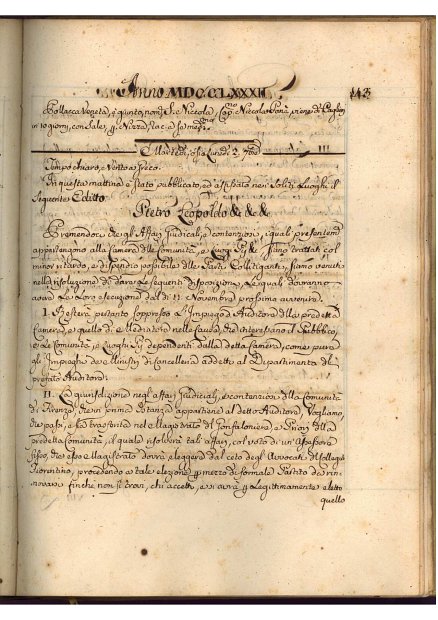 Anno MDCCLXXXII 143
Pollacca Veneta, S. Niccola, Cap.no Niccola viene da Cagliari
in 10 giorni, con Sale, p. Nizza
Martedì, o sia Lunedì 2.
Tempo chiaro, e Vento a Greco.
In questa mattina è stato pubblicato, ed affissato nei soliti Luoghi il
seguente Editto
Pietro Leopoldo &c &c &c
Premendoci che gli Affari Giudiciali, e contenziosi, i quali presentemente
appartengono alla Camera delle Comunità, e Luoghi Pij &c. siano trattati col
minor ritardo, e dispendio possibile delle Parti Collitiganti, siamo venuti
nella risoluzione di dare le seguenti disposizioni, le quali dovranno
avere la loro esecuzione dal dì 11. Novembre prossimo avvenire.
I. Resterà pertanto soppresso l'Impiego d'Auditore della predetta
Camera, e quello di Mediatore nelle Cause, che interessano il Pubblico,
e le Comunità, e Luoghi Pij dipendenti dalla detta Camera, come pure
gli Impieghi de Ministri di Cancelleria addetti al Dipartimento del
prefato Auditore.
II. La giurisdizione negli affari Giudiciali, e contenziosi della Comunità
di Firenze, che in prima Istanza appartiene al detto Auditore, Vogliamo,
che passi, e sia trasferita nel Magistrato del Gonfaloniere, e Priori della
predetta Comunità, il quale risolverà tali affari, col voto di un Assessore
fisso, che esso Magistrato dovrà eleggere dal ceto degli Avvocati del Collegio
Fiorentino, procedendo a tale elezione p. mezzo di formale Partito da rin-
novarsi finchè non si trovi, chi accetti, e si avrà p. legittimamente eletto
quello